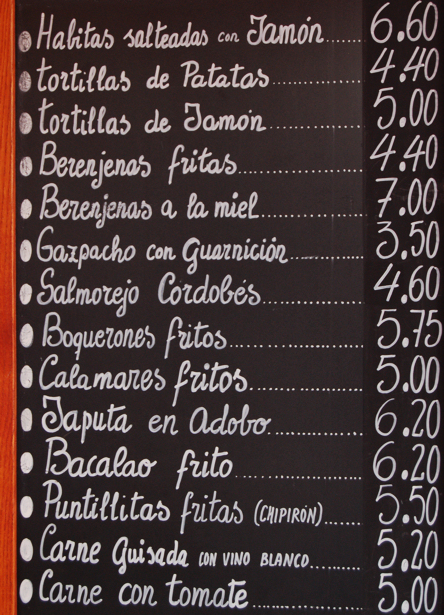 Habitas salteadas con Jamón....... 6.60
tortillas de Patatas................ 4.40
tortillas de Jamón................ 5.00
Berenjenas fritas..................... 4.40
Berenjenas a la miel................. 7.00
Gazpacho con Guarnición............. 3.50
Salmorejo Cordobés................. 4.60
Boquerones fritos..................... 5.75
Calamares fritos................... 5.00
Japuta en Adobo................ 6.20
Bacalao frito..................... 6.20
Puntillitas fritas (CHIPIRÓN)....... 5.50
Carne Guisada CON VINO BLANCO......... 5.20
Carne con tomate................... 5.00